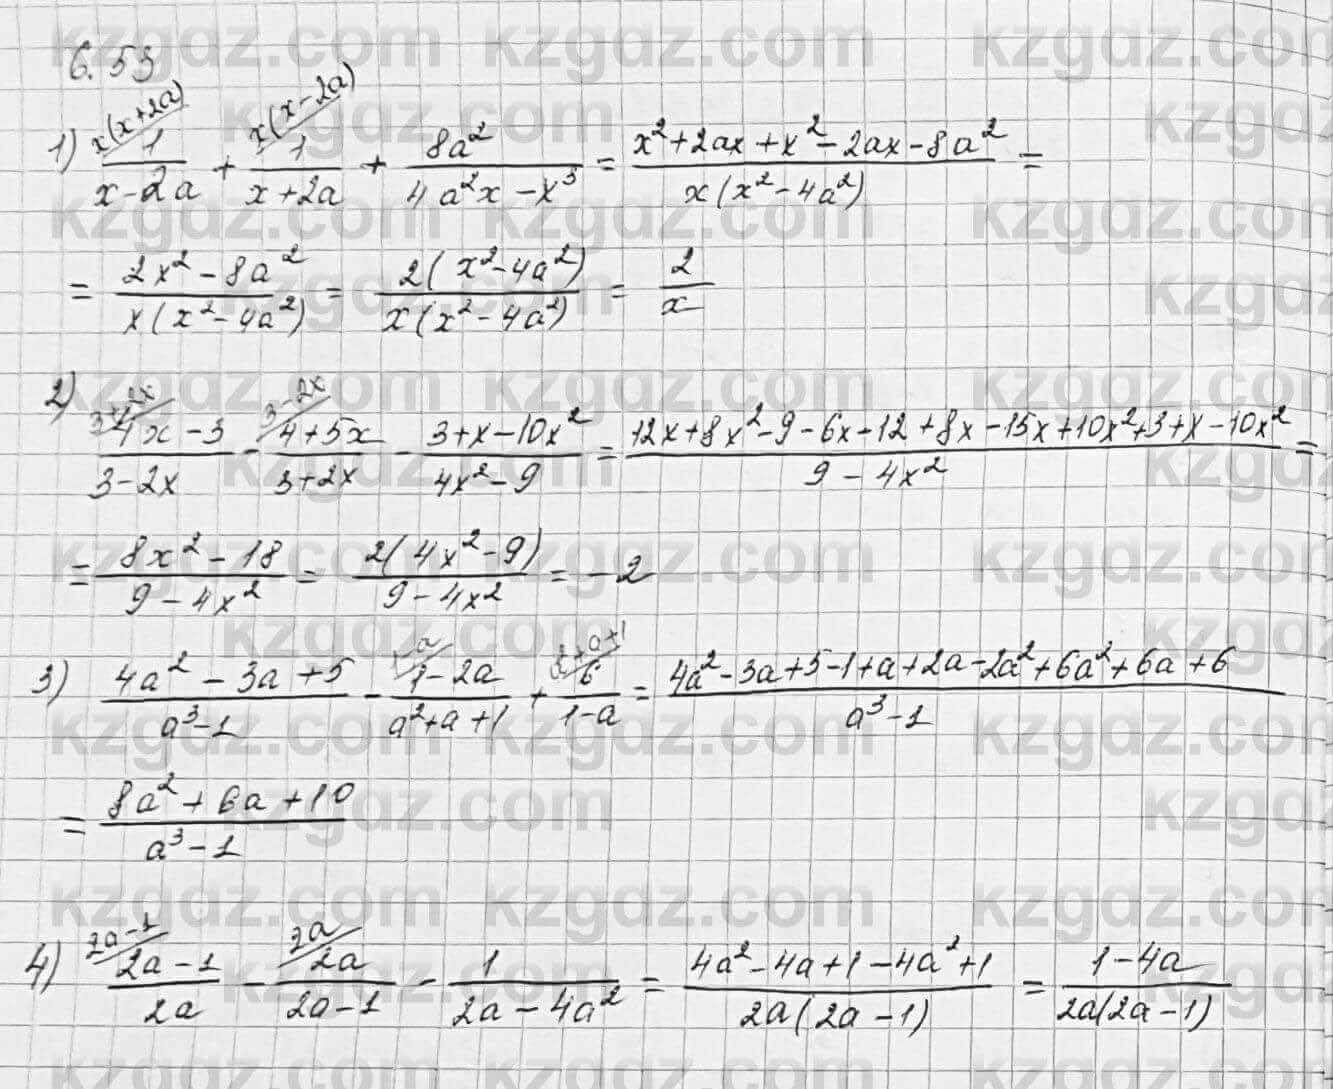 6.53
1) x(x+2a)/ 1/(x-2a) + x(x-2a)/ 1/(x+2a) + 8a²/(4a²x-x³) = (x²+2ax+x²-2ax-8a²)/(x(x²-4a²)) =
= (2x²-8a²)/(x(x²-4a²)) = 2(x²-4a²)/(x(x²-4a²)) = 2/x
2) 3+2x/ (4x-3)/(3-2x) - 3-2x/ (4+5x)/(3+2x) - (3+x-10x²)/(4x²-9) = (12x+8x²-9-6x-12+8x-15x+10x²+3+x-10x²)/(9-4x²) =
= (8x²-18)/(9-4x²) = 2(4x²-9)/(9-4x²) = -2
3) (4a²-3a+5)/(a³-1) - 1-a/ (1-2a)/(a²+a+1) + a²+a+1/ 6/(1-a) = (4a²-3a+5-1+a+2a-2a²+6a²+6a+6)/(a³-1)
= (8a²+6a+10)/(a³-1)
4) 2a-1/ (2a-1)/2a - 2a/ 2a/(2a-1) - 1/(2a-4a²) = (4a²-4a+1-4a²+1)/(2a(2a-1)) = (1-4a)/(2a(2a-1))
kzgdz.com